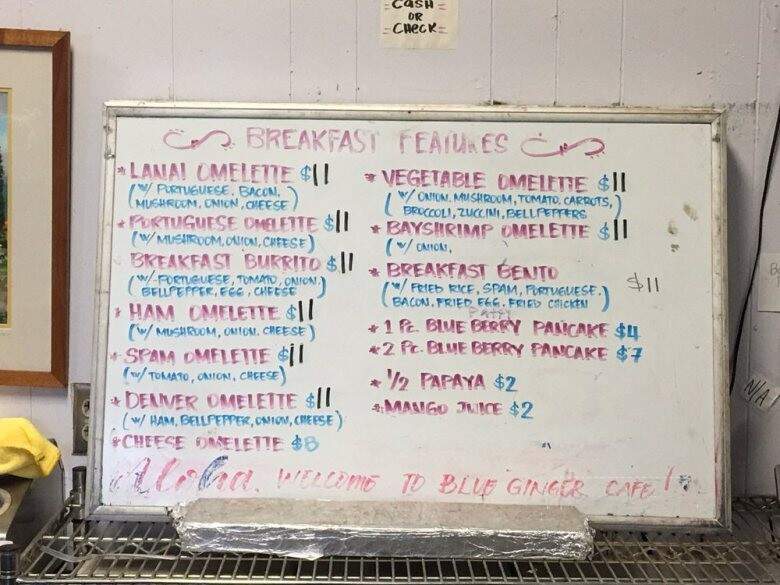 CASH
OR
CHECK
BREAKFAST FEATURES
* LANAI OMELETTE $11
(W/ PORTUGUESE, BACON,
MUSHROOM, ONION, CHEESE)
* PORTUGUESE OMELETTE $11
(W/ MUSHROOM, ONION, CHEESE)
BREAKFAST BURRITO $11
(W/ PORTUGUESE, TOMATO, ONION,
BELLPEPPER, EGG, CHEESE)
* HAM OMELETTE $11
(W/ MUSHROOM, ONION, CHEESE)
* SPAM OMELETTE $11
(W/ TOMATO, ONION, CHEESE)
* DENVER OMELETTE $11
(W/ HAM, BELLPEPPER, ONION, CHEESE)
* CHEESE OMELETTE $8
* VEGETABLE OMELETTE $11
(W/ ONION, MUSHROOM, TOMATO, CARROTS,
BROCCOLI, ZUCCINI, BELLPEPPERS)
* BAYSHRIMP OMELETTE $11
(W/ ONION,
* BREAKFAST BENTO $11
(W/ FRIED RICE, SPAM, PORTUGUESE,
BACON, FRIED EGG, FRIED CHICKEN)
* 1 Pc. BLUE BERRY PANCAKE $4
* 2 Pc. BLUE BERRY PANCAKE $7
* 1/2 PAPAYA $2
* MANGO JUICE $2
Aloha. WELCOME TO BLUE GINGER CAFE!
N/A